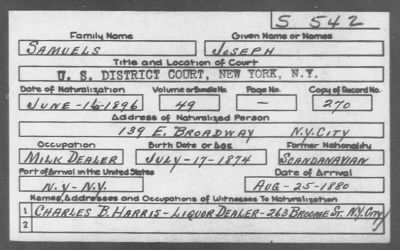 S 542
Family Name Given Name or Names
SAMUELS JOSEPH
Title and Location of Court
U. S. DISTRICT COURT, NEW YORK, N.Y.
Date of Naturalization Volume or Bundle No. Page No. Copy of Record No.
JUNE-16-1896 49 — 270
Address of Naturalized Person
139 E. BROADWAY N.Y. CITY
Occupation Birth Date or Age Former Nationality
MILK DEALER JULY-17-1874 SCANDANAVIAN
Port of Arrival in the United States Date of Arrival
N.Y-N.Y. AUG-25-1880
Names, Addresses and Occupations of Witnesses To Naturalization
1 CHARLES B. HARRIS-LIQUOR DEALER-263 BROOME ST. N.Y. CITY
2